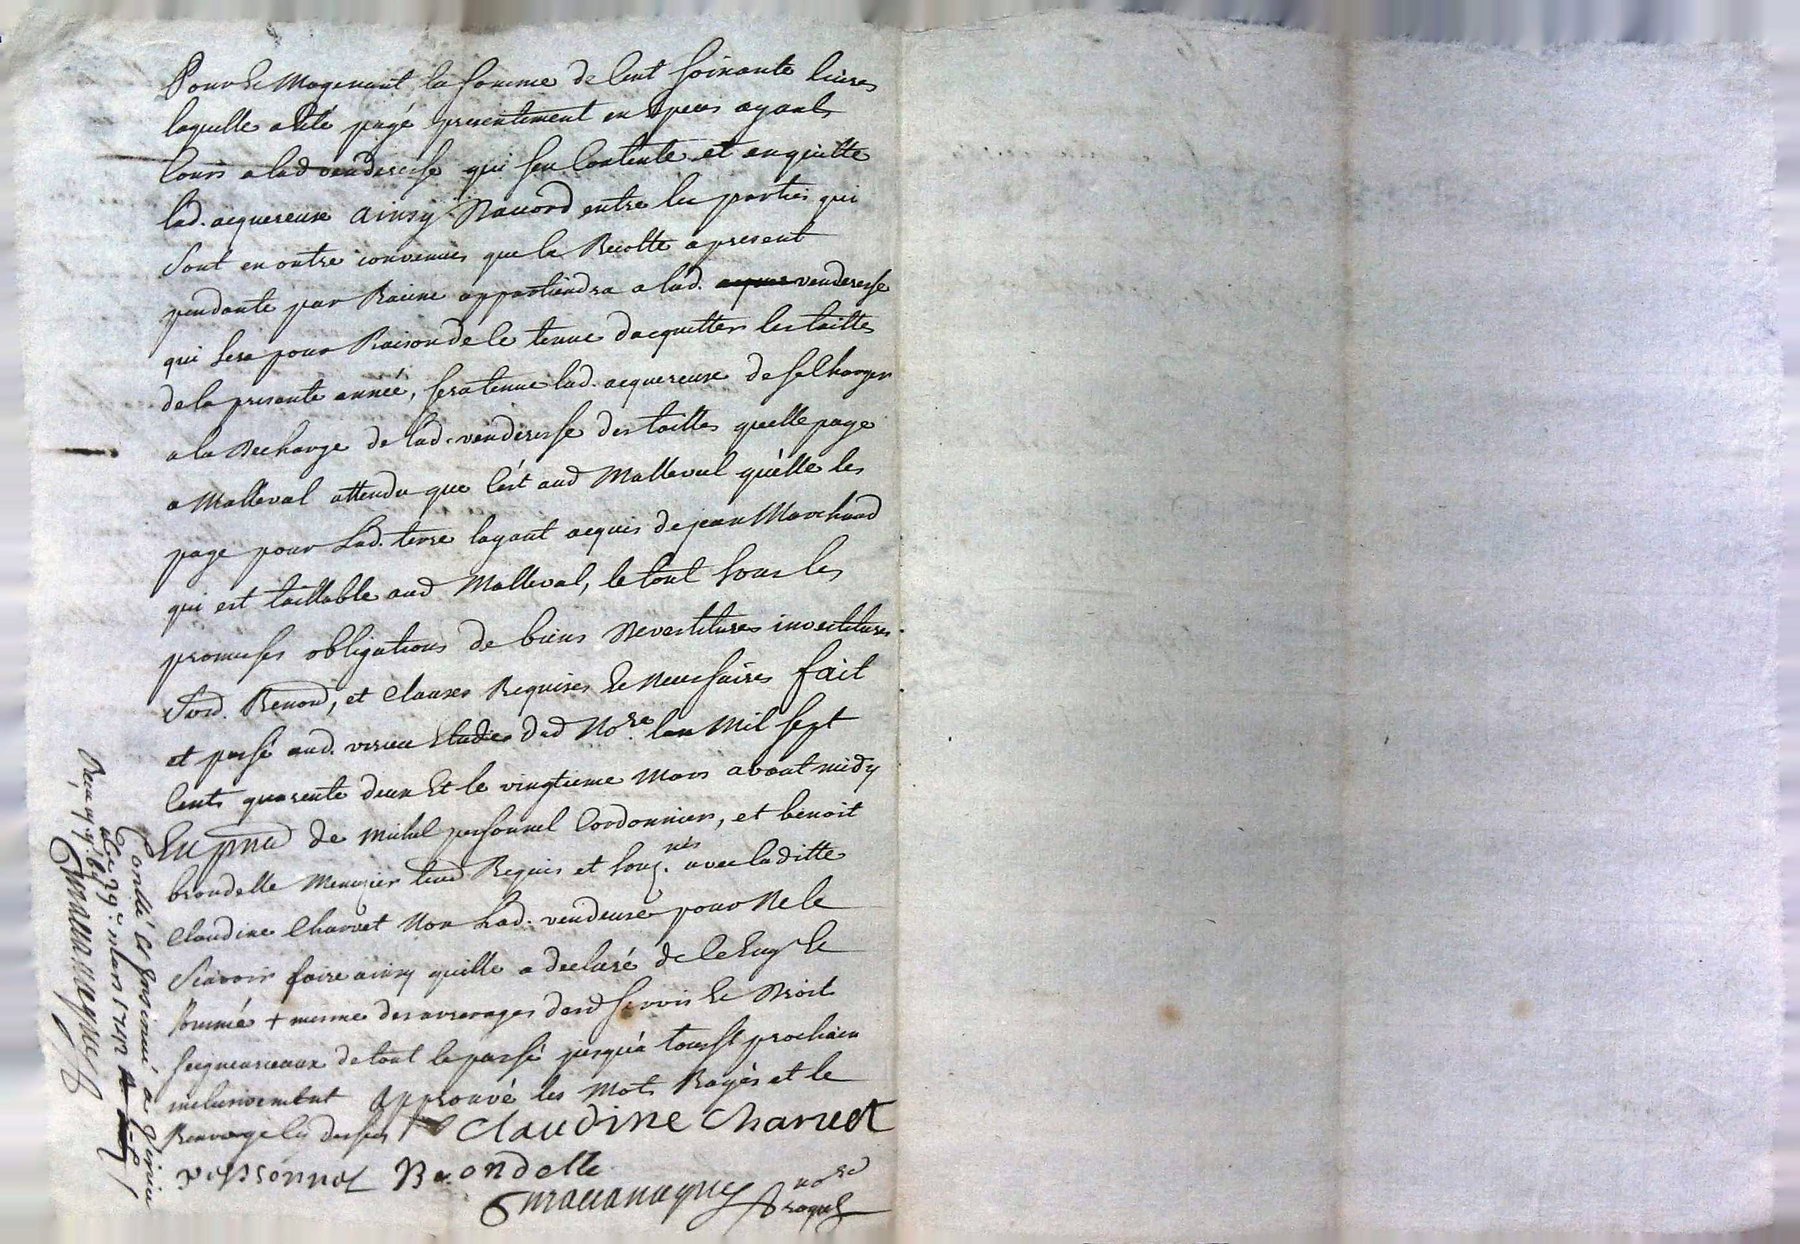 Pour & Moyenant la somme de Cent soixante livres
laquelle a été payé presentement en Especes ayants
Cours a lad venderesse qui sen Contente et en quitte
lad. acquereuse ainsy D'accord entre les parties qui
sont en outre convenues que la Recolte apresent
pendante par Racine appartiendra a lad. venderesse
qui sera pour Raison de ce tenue dacquitter les tailles
de la presante année, sera tenue lad. acquereuse de se Charger
a la Decharge de lad. venderesse des tailles quelle paye
a Malleval attendu que C'est aud Malleval qu'elle les
paye pour Lad. terre layant acquis de jean Marchand
qui est taillable aud Malleval, le tout sous les
promesses obligations de biens Devestitures investitures
et Clauses Requises & Necessaires fait
et passé aud. virieu Etude dud No.re lan Mil sept
Cents quarente deux Et le vingtieme Mars avant midy
En pnce de Michel peyssonnel Cordonnier, et benoit
brondelle Menuzier Requis et souz.nés avec laditte
Claudine Charvet Non Lad. vendeuse pour Ne le
Scavoir faire ainsy quelle a declaré de ce Enq.se &
sommée + mesme des arrerages desd servis & Droit
seigneuriaux de tout le passé jusqu'a tousst prochain
inclusivement Approuvé les Mots Rayés et le
Renvoye cy dessus Claudine Charvet
peyssonnel Brondelle
no.re
Royal
Controllé et Insinué a Virieu
Ce 29e Mars 1742
Receu